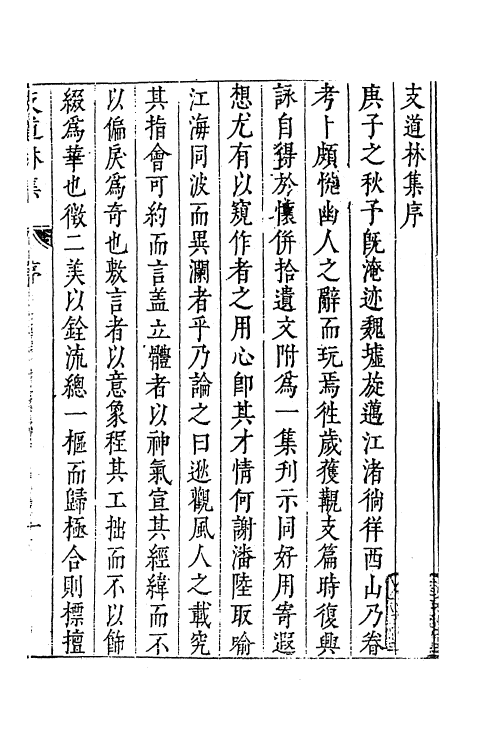 支道林集序
庚子之秋予旣淹迹魏墟旋邁江渚徜徉西山乃眷
考卜頗愜幽人之辭而玩焉徃歲獲觀支篇時復興
詠自得於懷併拾遺文附爲一集刋示同好用寄遐
想尤有以窺作者之用心卽其才情何謝潘陸取喻
江海同波而異瀾者乎乃論之曰逖觀風人之載究
其指會可約而言盖立體者以神氣宣其經緯而不
以偏戾爲奇也敷言者以意象程其工拙而不以餙
綴爲華也徵二美以銓流總一樞而歸極合則標擅
支道林集
序
一